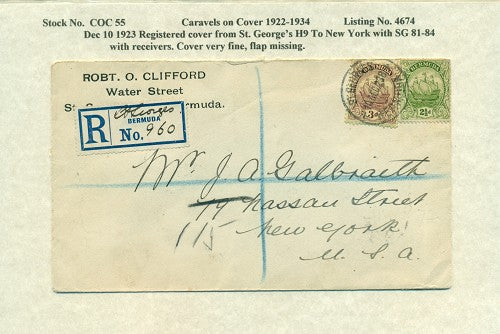 Stock No. COC 55 Caravels on Cover 1922-1934 Listing No. 4674
Dec 10 1923 Registered cover from St. George's H9 To New York with SG 81-84
with receivers. Cover very fine, flap missing.
ROBT. O. CLIFFORD
Water Street
St. muda.
R St Georges
BERMUDA
No. 960
BERMUDA
Mr. J A Galbraith
79 Nassau Street
115 New York
U. S. A.